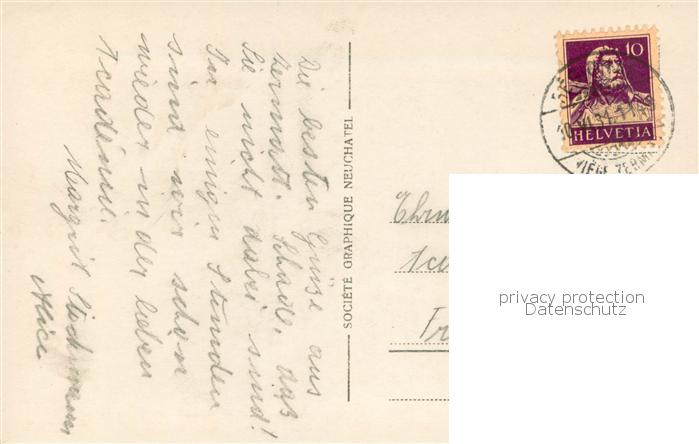 Die besten Grüsse aus
Zermatt. Schade, daß
Sie nicht dabei sind!
In einigen Stunden
sind wir schon
wieder in der lieben
Academie.
Margrit
Alice
SOCIÉTÉ GRAPHIQUE NEUCHATEL
10
HELVETIA
VIÈGE
privacy protection
Datenschutz